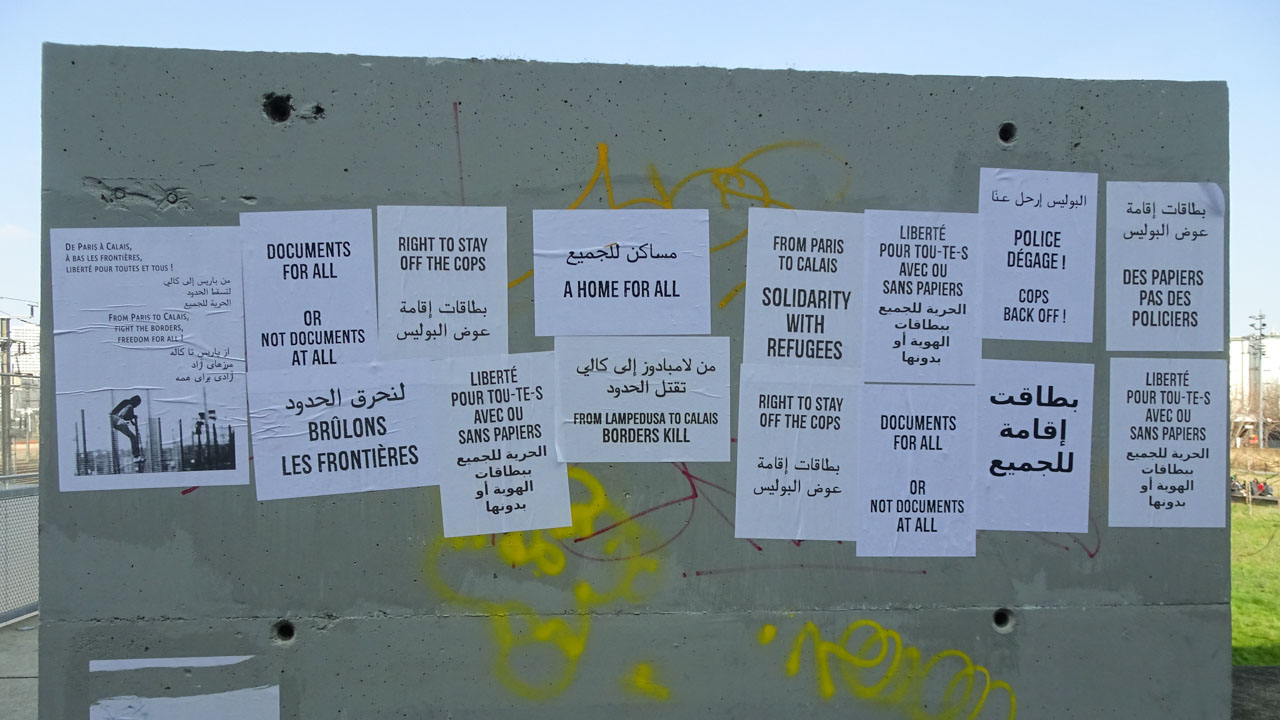 DE PARIS À CALAIS,
À BAS LES FRONTIÈRES,
LIBERTÉ POUR TOUTES ET TOUS !
من باريس إلى كالي
لتسقط الحدود
الحرية للجميع
FROM PARIS TO CALAIS,
FIGHT THE BORDERS,
FREEDOM FOR ALL !
از پاریس تا کاله
مرزهای آزاد
زادی برای همه
DOCUMENTS
FOR ALL
OR
NOT DOCUMENTS
AT ALL
لنحرق الحدود
BRÛLONS
LES FRONTIÈRES
RIGHT TO STAY
OFF THE COPS
بطاقات إقامة
عوض البوليس
LIBERTÉ
POUR TOU-TE-S
AVEC OU
SANS PAPIERS
الحرية للجميع
ببطاقات
الهوية أو
بدونها
مساكن للجميع
A HOME FOR ALL
من لامبادوز إلى كالي
تقتل الحدود
FROM LAMPEDUSA TO CALAIS
BORDERS KILL
FROM PARIS
TO CALAIS
SOLIDARITY
WITH
REFUGEES
RIGHT TO STAY
OFF THE COPS
بطاقات إقامة
عوض البوليس
LIBERTÉ
POUR TOU-TE-S
AVEC OU
SANS PAPIERS
الحرية للجميع
ببطاقات
الهوية أو
بدونها
DOCUMENTS
FOR ALL
OR
NOT DOCUMENTS
AT ALL
البوليس إرحل عنّا
POLICE
DÉGAGE !
COPS
BACK OFF !
بطاقت
إقامة
للجميع
بطاقات إقامة
عوض البوليس
DES PAPIERS
PAS DES
POLICIERS
LIBERTÉ
POUR TOU-TE-S
AVEC OU
SANS PAPIERS
الحرية للجميع
ببطاقات
الهوية أو
بدونها